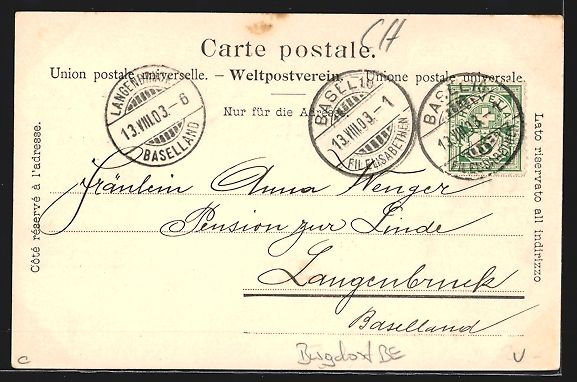 CH
Carte postale.
Union postale universelle. – Weltpostverein. – Unione postale universale.
Nur für die Adresse.
LANGENBRUCK
13.VIII.03.–6
BASELLAND
BASEL 18
13.VIII.03.–1
FIL. ELISABETHEN
BASEL 18
13.VIII.03
FIL. ELISABETHEN
Côté réservé à l'adresse.
Lato riservato all indirizzo
Fräulein Anna Wenger
Pension zur Linde
Langenbruck
Baselland
Burgdorf BE
C
U